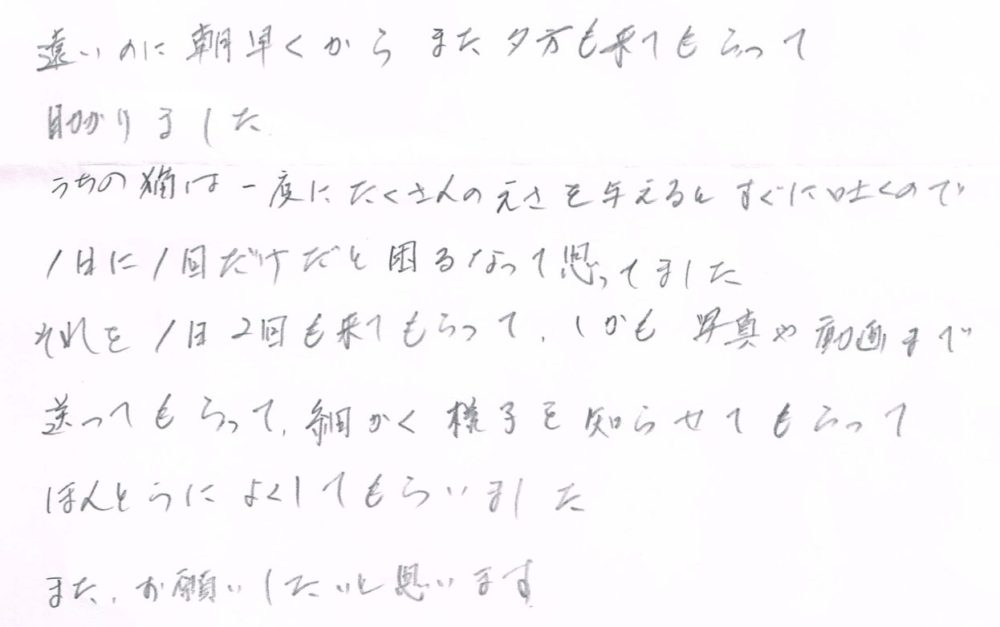 遠いのに朝早くから また夕方も来てもらって
助かりました
うちの猫は一度にたくさんのえさを与えるとすぐに吐くので
1日に1回だけだと困るなって思ってました
それを1日2回も来てもらって、しかも写真や動画まで
送ってもらって、細かく様子を知らせてもらって
ほんとうによくしてもらいました
また、お願いしたいと思います